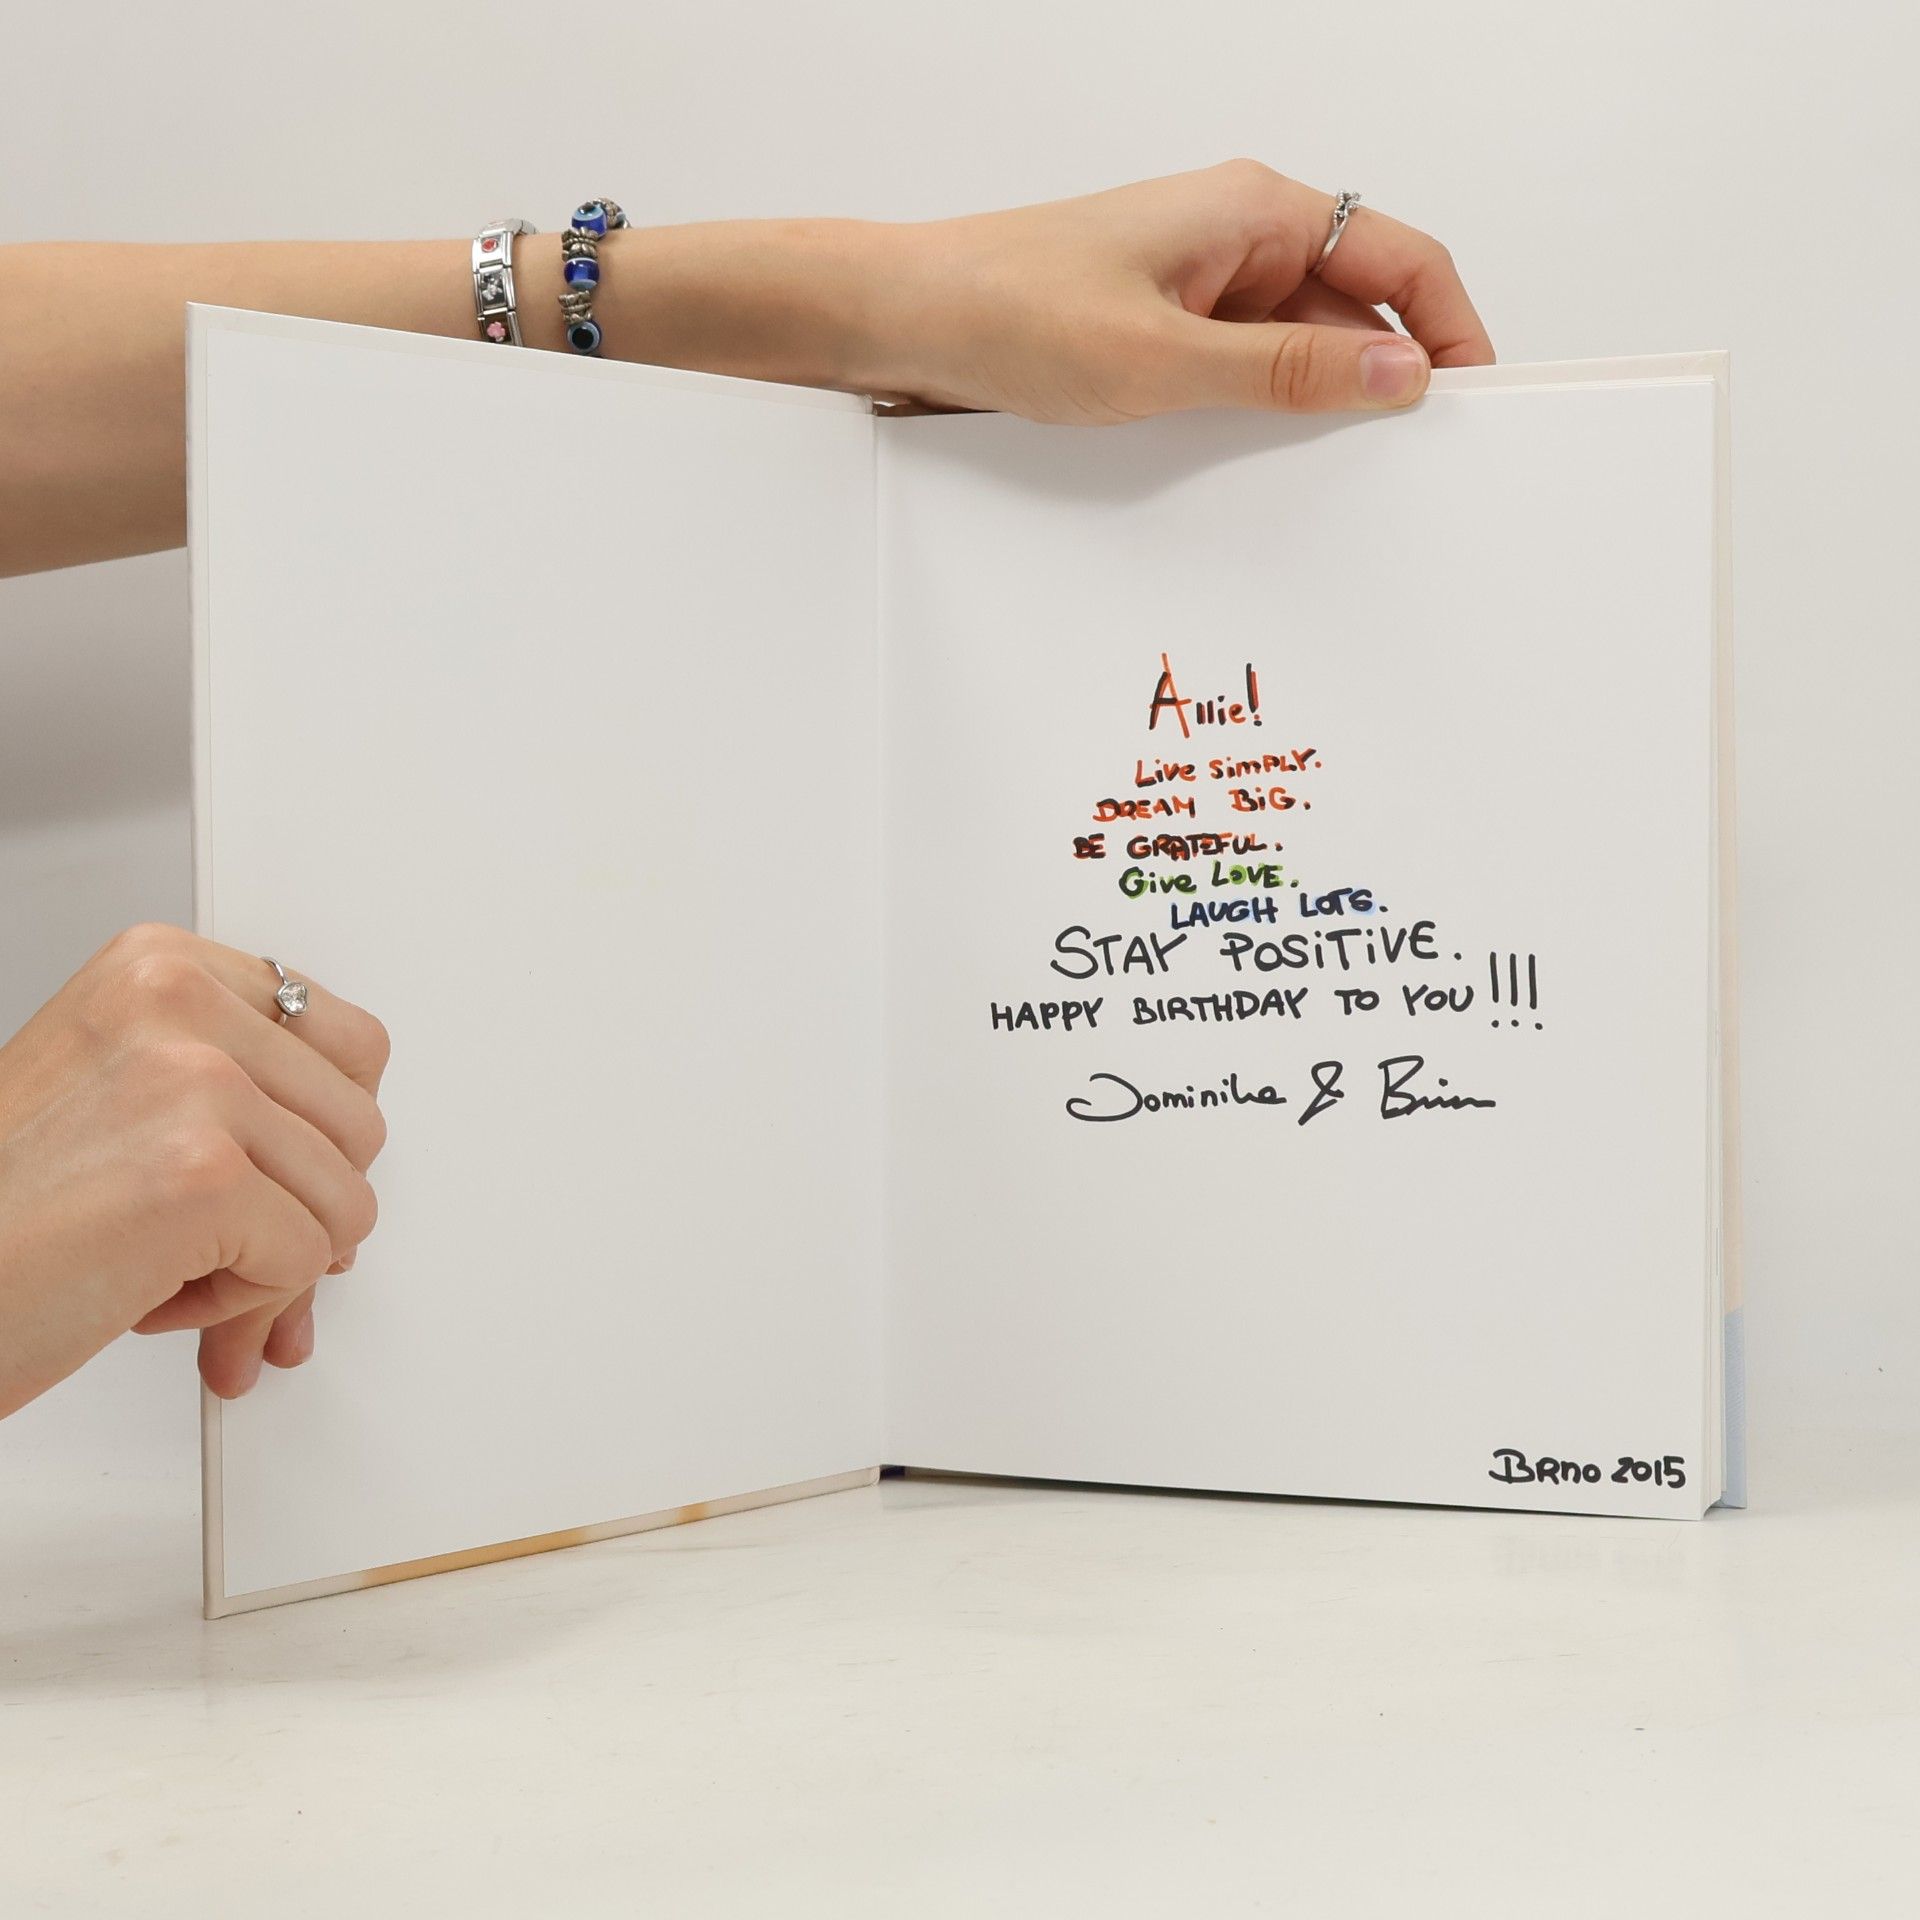 Allie!
Live SiMPLY.
DREAM BiG.
BE GRATEFUL.
Give LOVE.
LAUGH LOTS.
STAY POSiTiVE.
HAPPY BIRTHDAY TO YOU!!!
Dominika & Brian
BRno 2015